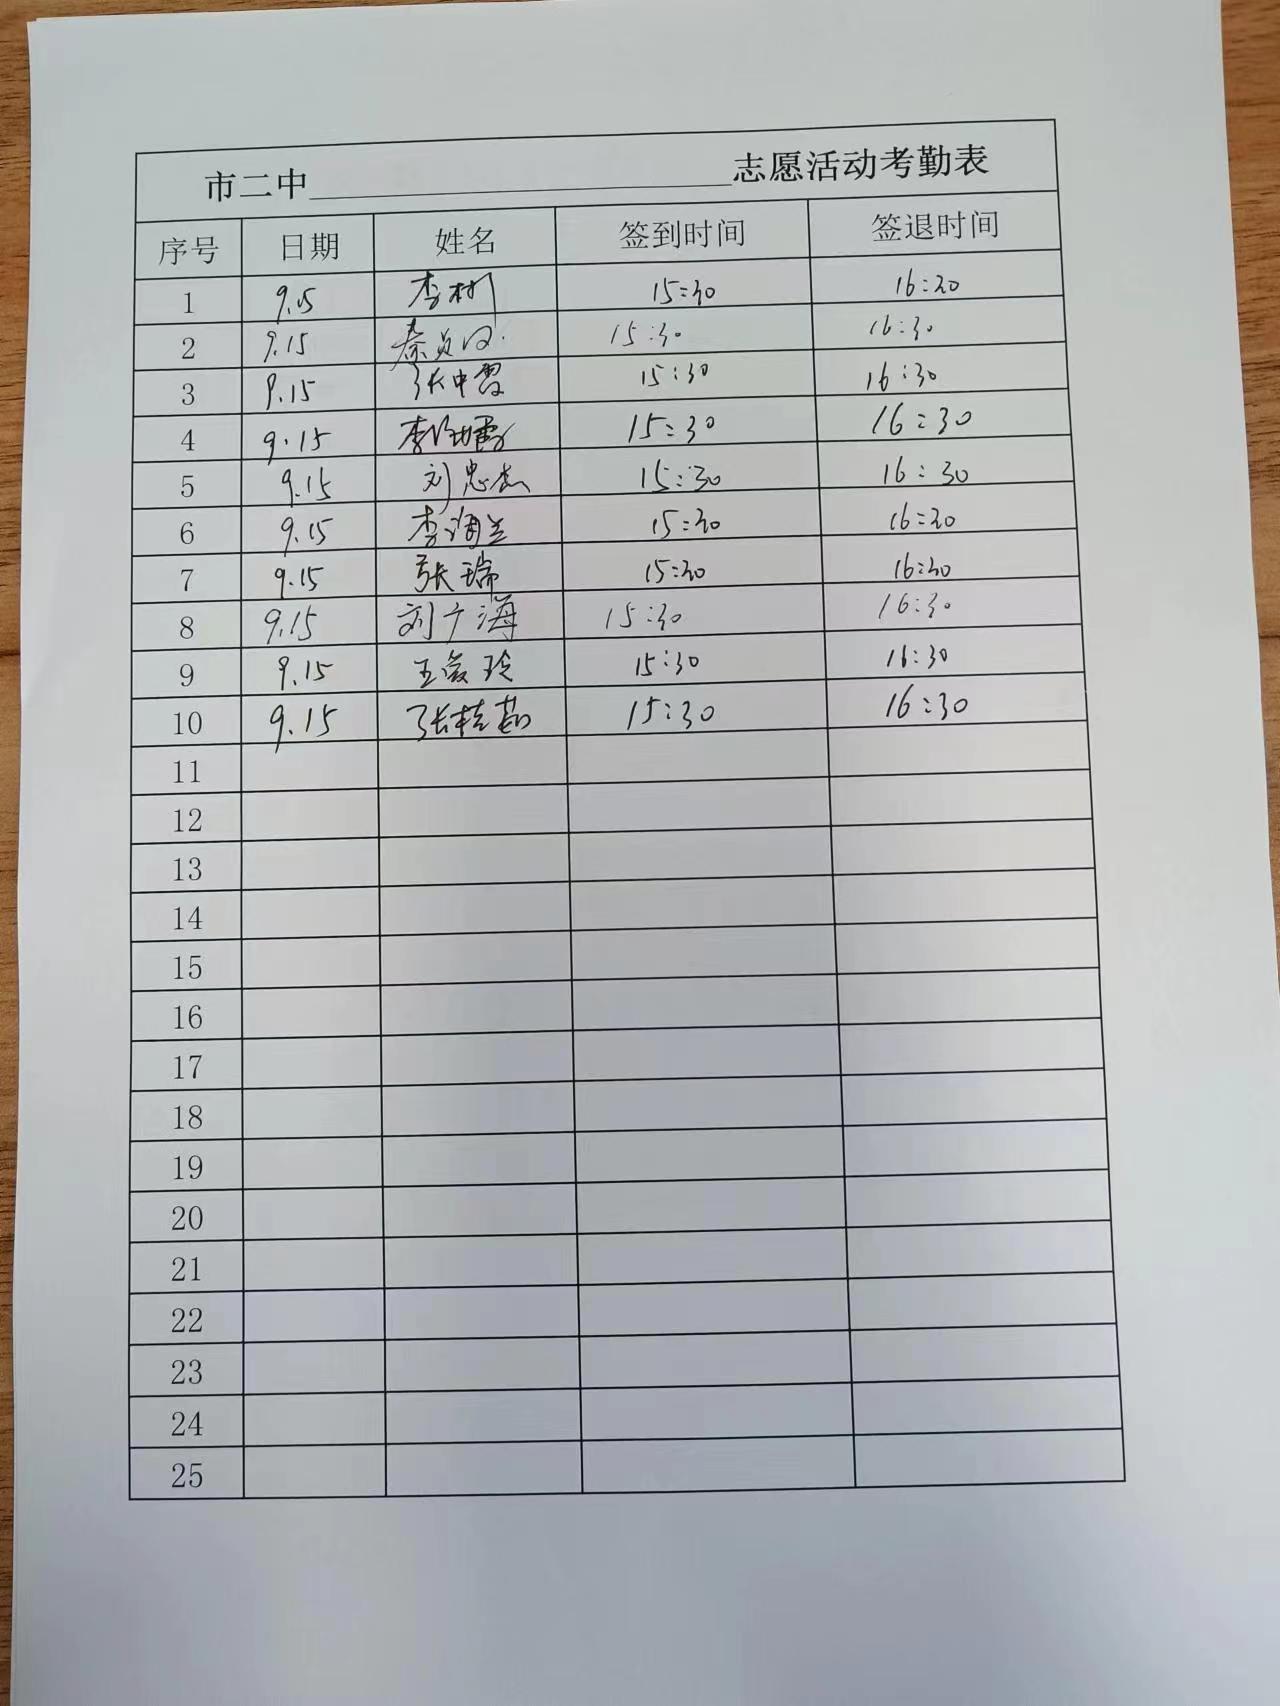 市二中 志愿活动考勤表
序号 日期 姓名 签到时间 签退时间
1 9.15 李彬 15:30 16:30
2 9.15 秦 15:30 16:30
3 9.15 张中霞 15:30 16:30
4 9.15 李 霞 15:30 16:30
5 9.15 刘忠杰 15:30 16:30
6 9.15 李海兰 15:30 16:30
7 9.15 张瑞 15:30 16:30
8 9.15 刘广海 15:30 16:30
9 9.15 王爱玲 15:30 16:30
10 9.15 张桂茹 15:30 16:30
11
12
13
14
15
16
17
18
19
20
21
22
23
24
25